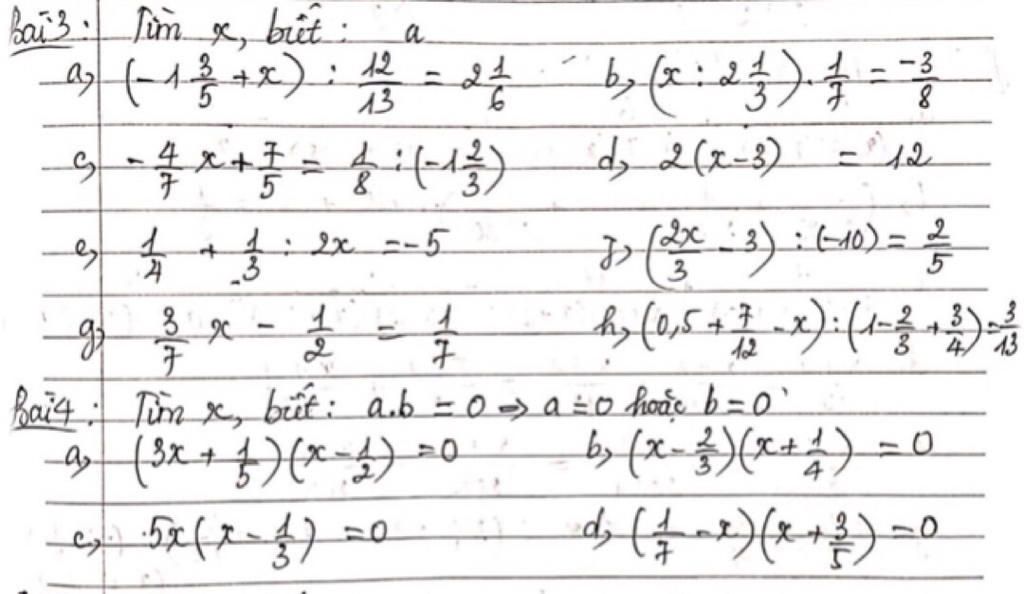 Bài 3: Tìm x, biết: a
a, (-1 3/5 + x) : 12/13 = 2 1/6 b, (x : 2 1/3) . 1/7 = -3/8
c, - 4/7 x + 7/5 = 1/8 : (-1 2/3) d, 2(x-3) = 12
e, 1/4 + 1/3 : 2x = -5 f, (2x/3 - 3) : (-10) = 2/5
g, 3/7 x - 1/2 = 1/7 h, (0,5 + 7/12 - x) : (1 - 2/3 + 3/4) = 3/13
Bài 4: Tìm x, biết: a.b = 0 => a = 0 hoặc b = 0
a, (3x + 1/5)(x - 1/2) = 0 b, (x - 2/3)(x + 1/4) = 0
c, 5x(x - 1/3) = 0 d, (1/7 - x)(x + 3/5) = 0